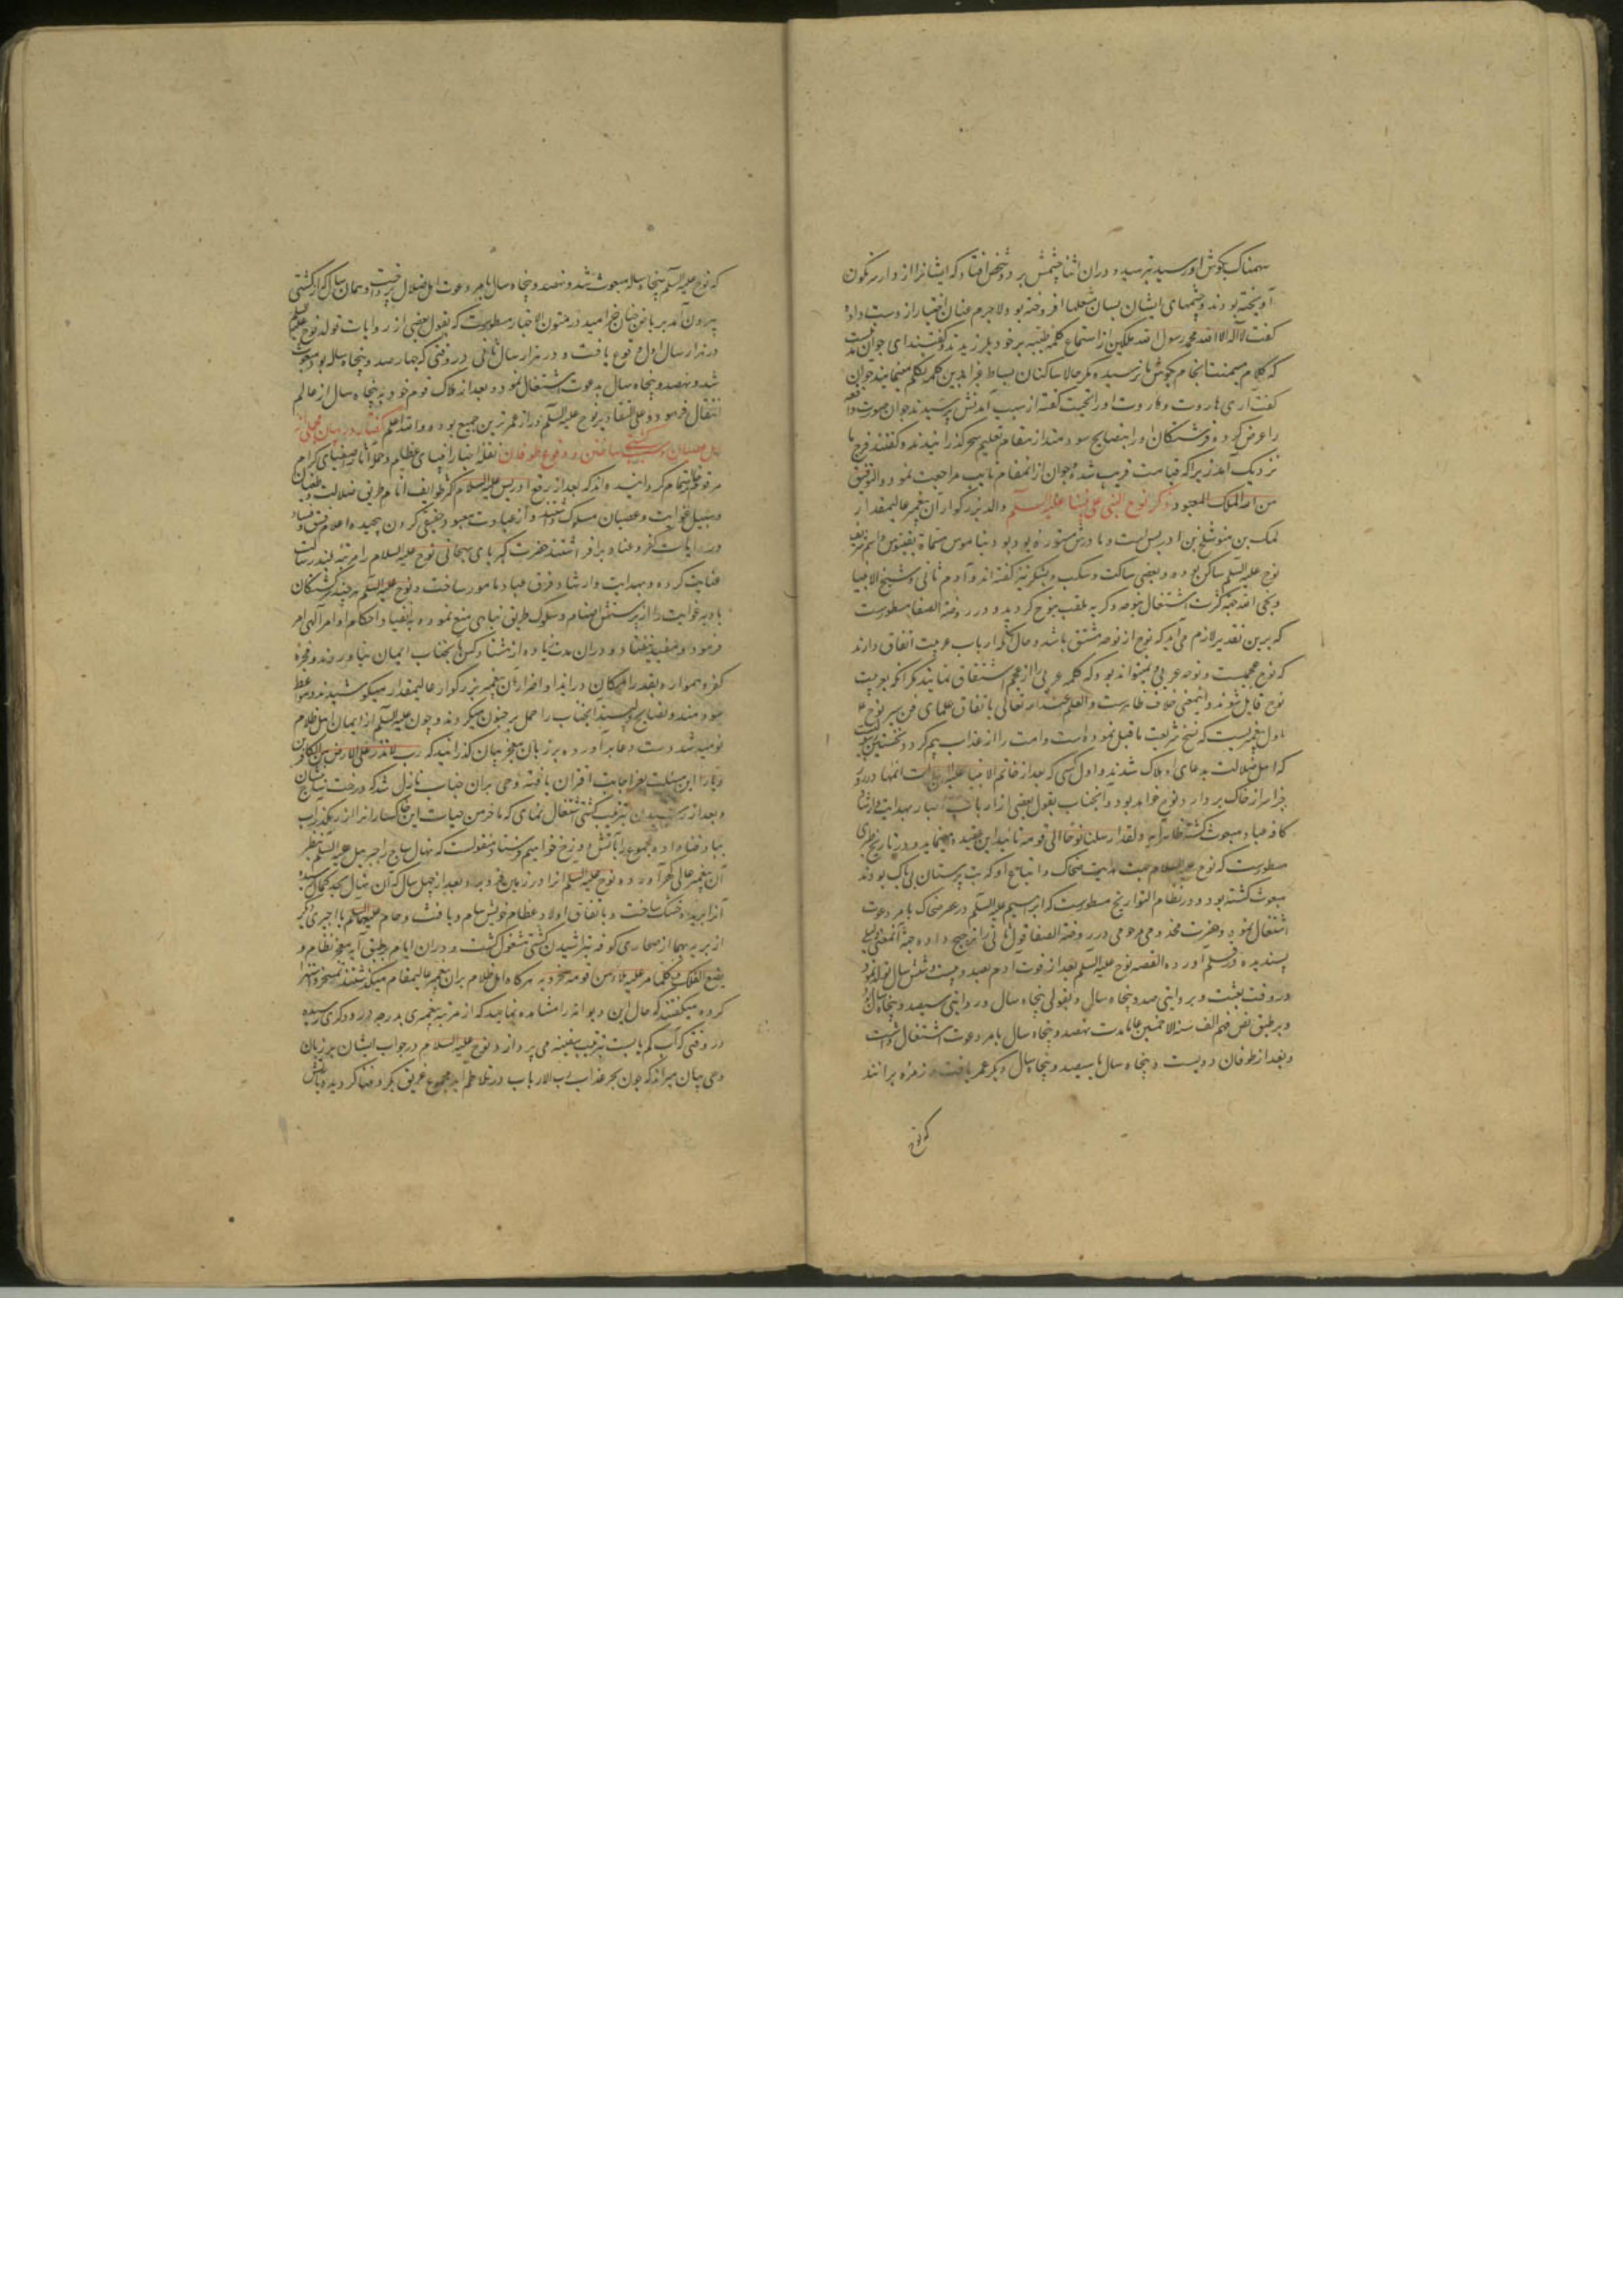 سهمناک بگوش او رسید بترسید و دران اثنا چشمش بر دو شخص افتاد که ایشانرا از دار سرنگون
آویخته بودند و چشمهای ایشان بسان شعلها افروخته بود لاجرم عنان اختیار از دست داده
گفت لا اله الا الله محمد رسول الله ملکین از استماع کلمه طیبه بر خود بلرزیدند و گفتند ای جوان
که کلام میمنت انجام بگوش ما نرسیده مگر حالا ساکنان بساط غبرا بدین کلمه تکلم مینمایند جوان
گفت آری هاروت و ماروت او را تحیت گفته از سبب آمدنش پرسیدند جوان صورت واقعه
را عرض کرد فرشتگان او را بنصایح سودمند از مقام تعلیم سحر گذرانیدند و گفتند فرج ما
نزدیک آمد زیرا که قیامت قریب شد و جوان از انمقام تایب مراجعت نمود و التوفیق
من الله الملک المعبود ذکر نوح النبی علی نبینا علیه السلام والد بزرگوار آن پیغمبر عالیمقدار
لمک بن متوشلخ بن ادریس است و مادرش مستوره بود
نوح علیه السلام ساکن بوده و بعضی ساکت و سکب و یشکر نیز گفته اند و آدم ثانی و شیخ الانبیا
و نجی الله جهة کثرت اشتغال بنوحه و گریه ملقب بنوح گردید و در روضة الصفا مسطورست
که برین تقدیر لازم می آید که نوح از نوحه مشتق باشد و حال آنکه ارباب عربیت اتفاق دارند
که نوح عجمیست و نوحه عربی و نمیتواند بود که کلمه عربی را از عجم اشتقاق نمایند مگر آنکه بعربیت
نوح قایل شوند و اینمعنی خلاف ظاهرست و العلم عند الله تعالی باتفاق علمای فن سیر نوح
اول پیغمبریست که نسخ شریعت ماقبل نموده است و امت را از عذاب بیم کرد و نخستین
که اهل ضلالت بدعای او هلاک شدند و اول کسی که بعد از خاتم الانبیا علیه
سر از خاک بردارد نوح خواهد بود و انجناب بقول بعضی از ارباب اخبار بهدایت و ارشاد
کافه عباد مبعوث گشته ظاهر آیه و لقد ارسلنا نوحا الی قومه تایید این عقیده مینماید و در تاریخ طبری
مسطورست که نوح علیه السلام جهت هدایت ضحاک و اتباع او که بت پرستان بی باک بودند
مبعوث گشته بود و در نظام التواریخ مسطورست که ابراهیم علیه السلام در عصر ضحاک بامر دعوت
اشتغال نمود و حضرت مخدومی مرحومی در روضة الصفا قول ثانی را ترجیح داده جهة آنمعنی دلیلی
پسندیده در سلک آورده القصه نوح علیه السلام بعد از فوت آدم بصد و بیست و شش سال تولد نمود
در وقت بعثت و بروایتی صد و پنجاه سال و بقولی پنجاه سال و در روایتی سیصد و پنجاه سال
و بر طبق نص فهم الف سنة الا خمسین عاما مدت نهصد و پنجاه سال بامر دعوت اشتغال داشت
و بعد از طوفان دویست و پنجاه سال یا سیصد و پنجاه سال دیگر عمر یافت و زمره برانند
که نوح
که نوح علیه السلام پنجاه ساله مبعوث شد و نهصد و پنجاه سال بامر دعوت اهل ضلال پرداخت و همان سال که از کشتی
بیرون آمد بریاض جنان خرامید در متون الاخبار مسطورست که بقول بعضی از روایات تولد نوح علیه السلام
در هزار سال اول وقوع یافت و در هزار سال ثانی در وقتی که چهار صد و پنجاه ساله بود مبعوث
شد و نهصد و پنجاه سال بدعوت اشتغال نمود و بعد از هلاک قوم خود به پنجاه سال از عالم
انتقال فرمود و علی التقادیر نوح علیه السلام دراز عمر ترین جمیع بوده و الله اعلم گفتار در بیان مجملی از
اهل عصیان و سبب کشتی ساختن و وقوع طوفان نقله اخبار انبیای عظام و حمله آثار اصفیای کرام
مرقوم ارتسام گردانیده اند که بعد از رفع ادریس علیه السلام اکثر طوایف انام طریق ضلالت و طغیان
و سبیل غوایت و عصیان مسلوک داشتند و از عبادت معبود حقیقی گردن پیچیده اعلام فسق و فساد
و رایات کفر و عناد برافراشتند حضرت کبریای سبحانی نوح علیه السلام را مرتبه بلند رسالت
عنایت کرده و بهدایت و ارشاد فرق عباد مامور ساخت و نوح علیه السلام هر چند گم گشتگان
بادیه غوایت را از پرستش اصنام و سلوک طریق تباهی منع نموده بانقیاد احکام اوامر الهی امر
فرمود مفید نیفتاد و دران مدت زیاده از هشتاد کس بانجناب ایمان نیاوردند و فجره
کفره همواره بقدر امکان در ایذا و اضرار آن پیغمبر بزرگوار عالیمقدار میکوشیدند و مواعظ
سودمند و نصایح دلپسند انجناب را حمل بر جنون میکردند و چون علیه السلام از ایمان اهل ظلام
نومید شد دست دعا برآورده بر زبان معجز بیان گذرانید که رب لا تذر علی الارض من الکافرین
دیارا این مسئلت بعز اجابت اقتران یافته وحی بران جناب نازل شد که درخت ساج بنشان
و بعد از رسیدن بترتیب کشتی اشتغال نمای که ما خرمن حیات این خاکساران را از رهگذر آب
بباد فنا داده مجموع را بآتش دوزخ خواهیم فرستاد منقولست که نهال ساج را جبرئیل علیه السلام بنظر
آن پیغمبر عالی گهر آورده نوح علیه السلام آنرا در زمین فرو برد و بعد از چهل سال که آن نهال بحد کمال رسید
آنرا بریده خشک ساخت و باتفاق اولاد عظام خویش سام و یافث و حام علیهما السلام با اجیری دیگر
از بریه در صحاری کوفه بتراشیدن کشتی مشغول گشت و دران ایام بر طبق آیه معجز نظام و
یصنع الفلک و کلما مر علیه ملاء من قومه سخروا منه هر گاه اهل ظلام بران پیغمبر عالیمقام میگذشتند تمسخر و استهزا
کرده میگفتند که حال این دیوانه را مشاهده نمایید که از مرتبه پیغمبری بدرجه درودگری رسیده
در وقتی که آب کم یابست بترتیب سفینه می پردازد نوح علیه السلام در جواب ایشان بر زبان
وحی بیان میراند که چون بحر عذاب رب الارباب در تلاطم آید مجموع غریق بحر فنا گردید و بآتش